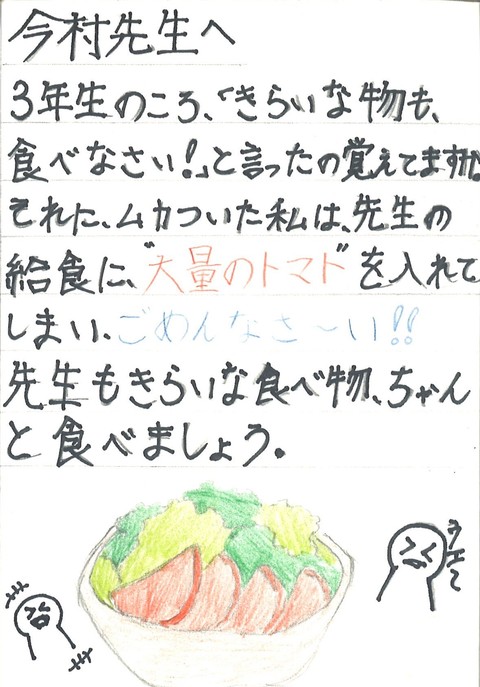 今村先生へ
3年生のころ、「きらいな物も、
食べなさい!」と言ったの覚えてますか。
それに、ムカついた私は、先生の
給食に、"大量のトマト"を入れて
しまい、ごめんなさ〜い!!
先生もきらいな食べ物、ちゃん
と食べましょう。